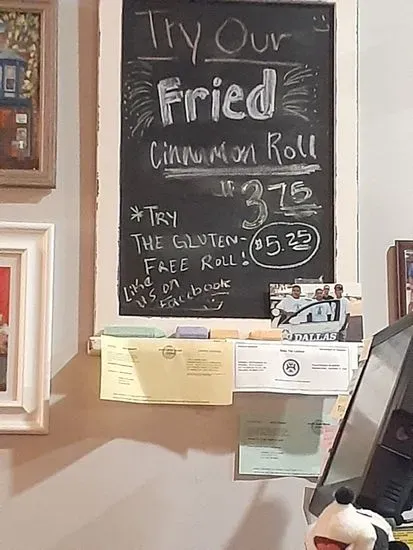 Try Our
Fried
Cinnamon Roll
$3.75
*TRY
THE GLUTEN-
FREE ROLL!
$5.25
Like
us on
Facebook
DALLAS